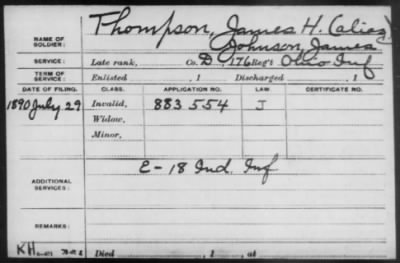 NAME OF SOLDIER: Thompson, James H. (alias)
Johnson, James
SERVICE: Late rank, Co. D, 176 Reg't Ohio Inf
TERM OF SERVICE: Enlisted , 1 Discharged , 1
DATE OF FILING. CLASS. APPLICATION NO. LAW CERTIFICATE NO.
1890 July 29 Invalid, 883 554 J
Widow,
Minor,
ADDITIONAL SERVICES: E- 18 Ind. Inf
REMARKS:
KH Died , 1 , at